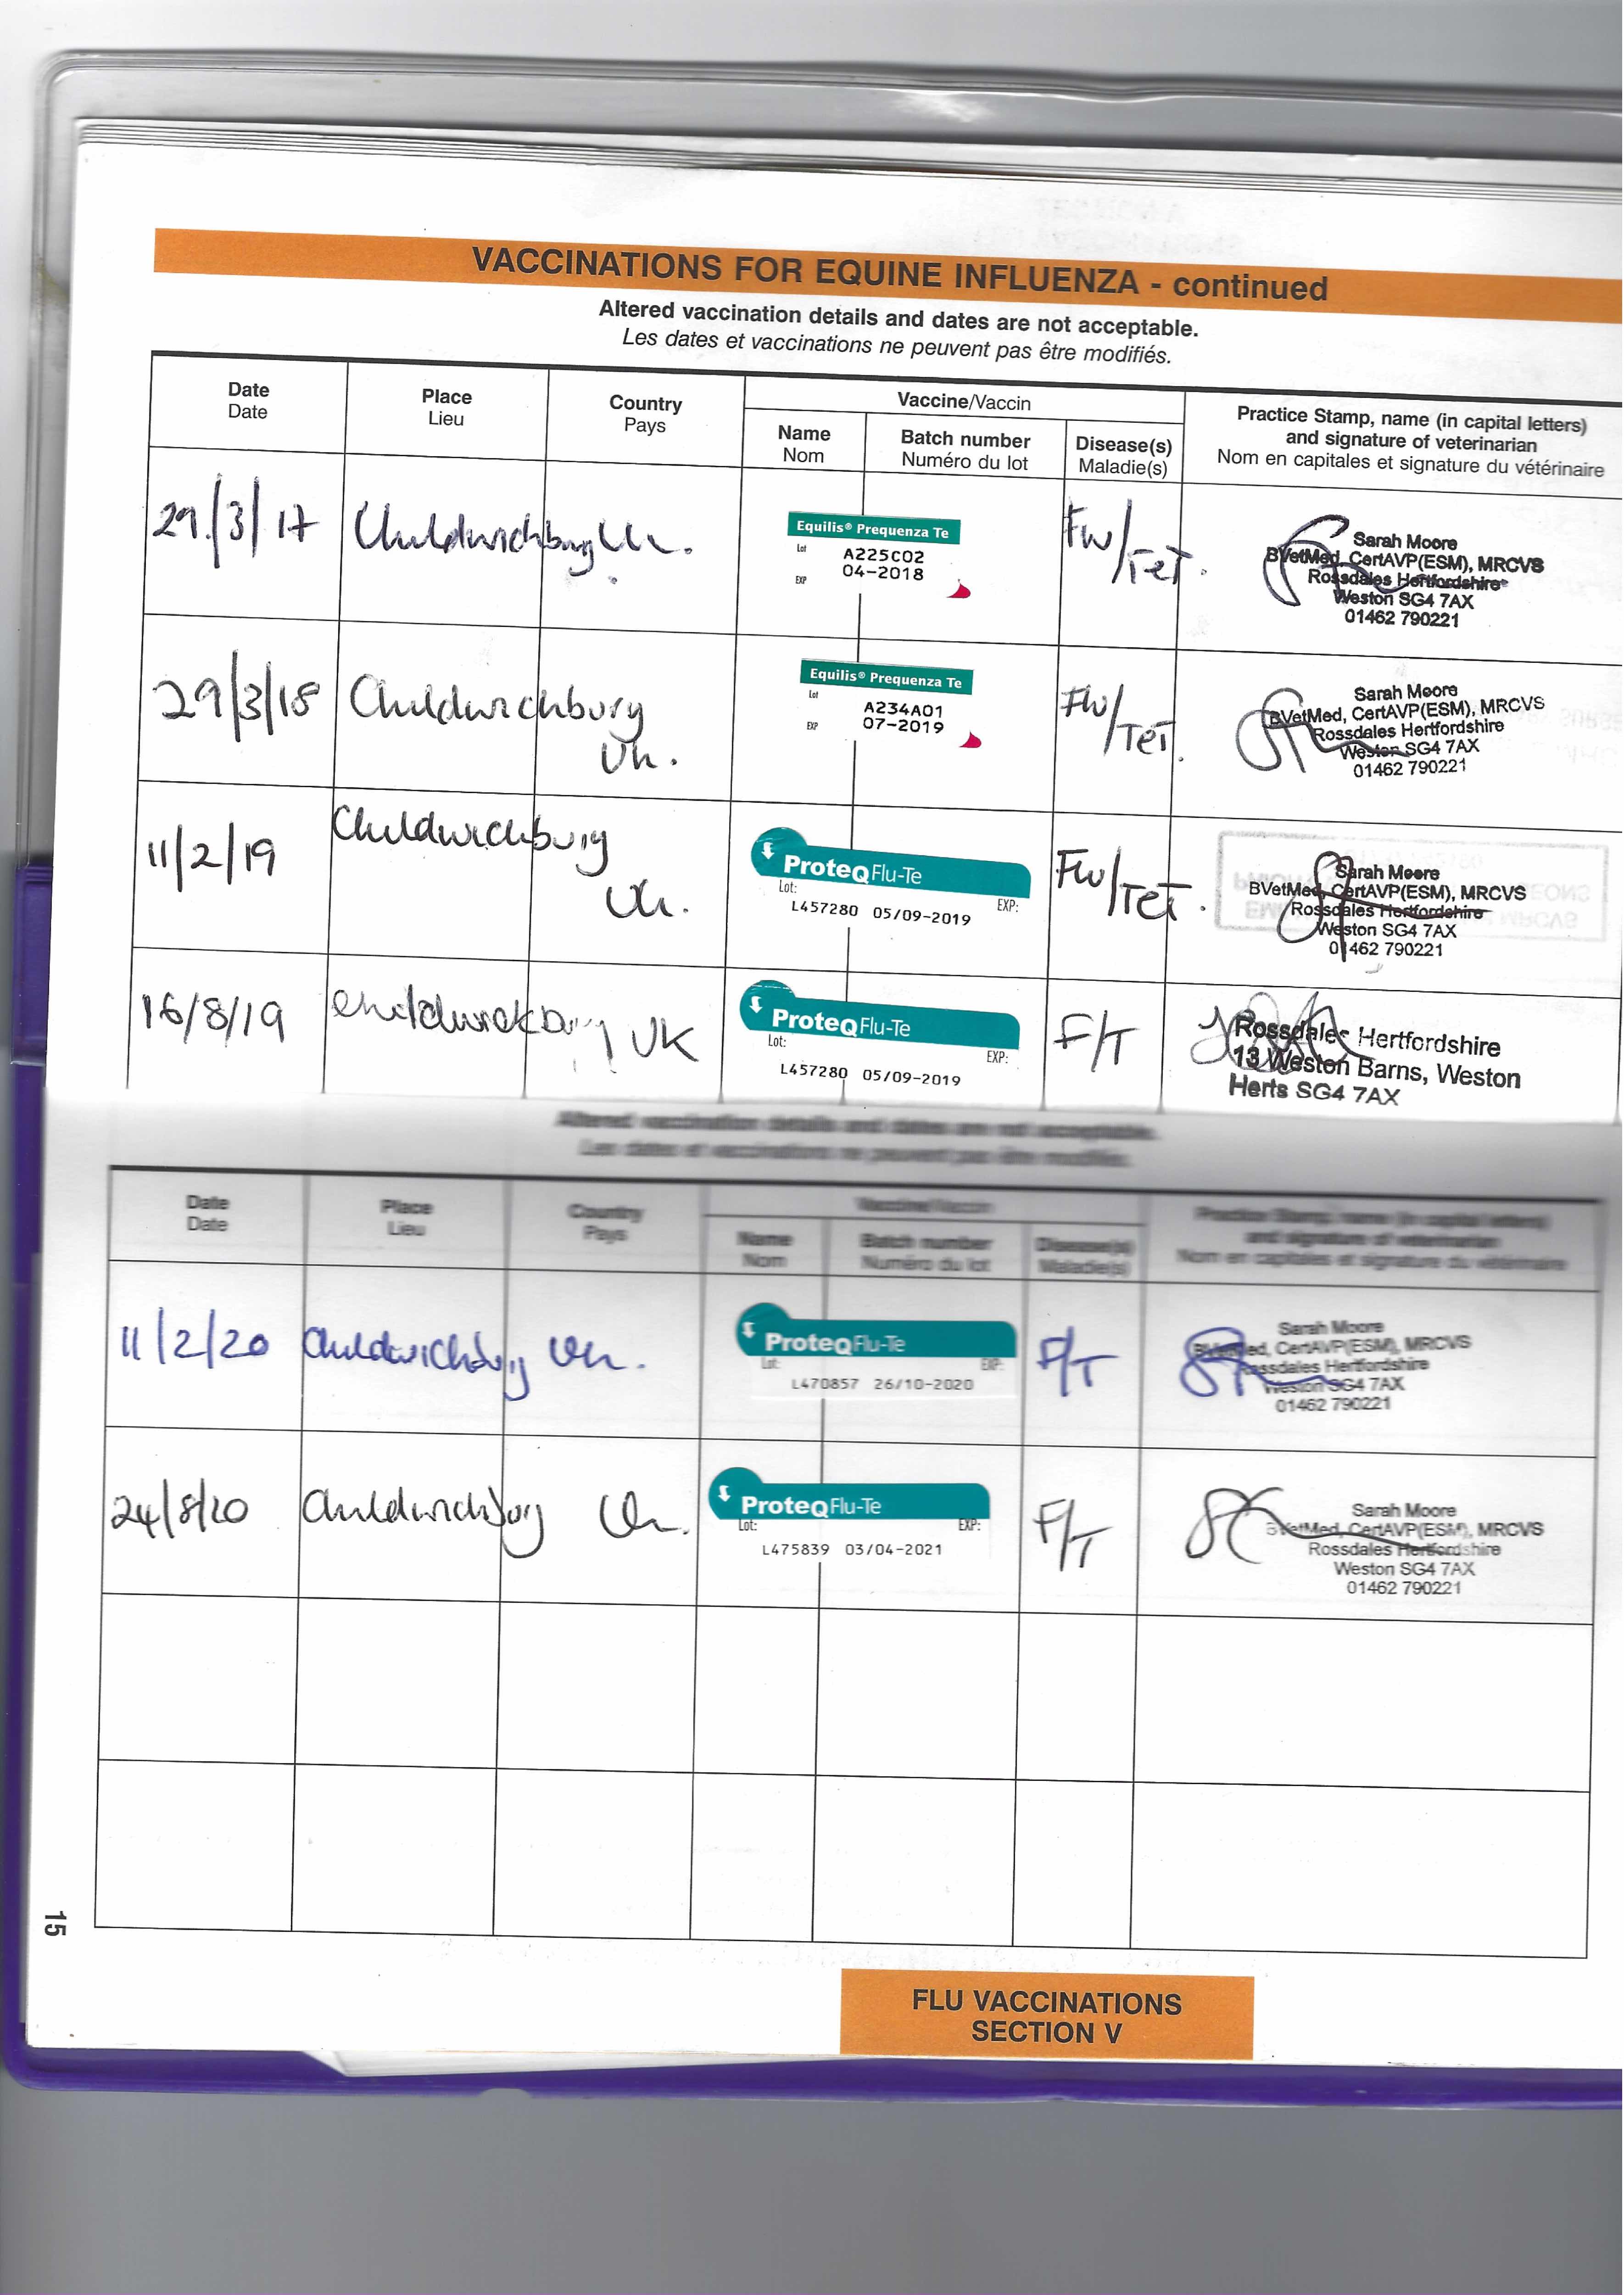 VACCINATIONS FOR EQUINE INFLUENZA - continued
Altered vaccination details and dates are not acceptable.
Les dates et vaccinations ne peuvent pas être modifiés.
Date
Date
Place
Lieu
Country
Pays
Vaccine/Vaccin
Name
Nom
Batch number
Numéro du lot
Disease(s)
Maladie(s)
Practice Stamp, name (in capital letters)
and signature of veterinarian
Nom en capitales et signature du vétérinaire
29/3/17
Childwickbury Uk.
Equilis® Prequenza Te
Lot
A225C02
EXP
04-2018
Flu/Tet.
Sarah Moore
BVetMed, CertAVP(ESM), MRCVS
Rossdales Hertfordshire
Weston SG4 7AX
01462 790221
29/3/18
Childwickbury
Uk.
Equilis® Prequenza Te
Lot
A234A01
EXP
07-2019
Flu/Tet.
Sarah Moore
BVetMed, CertAVP(ESM), MRCVS
Rossdales Hertfordshire
Weston SG4 7AX
01462 790221
11/2/19
Childwickbury
Uk.
ProteqFlu-Te
Lot: EXP:
L457280 05/09-2019
Flu/Tet.
Sarah Moore
BVetMed, CertAVP(ESM), MRCVS
Rossdales Hertfordshire
Weston SG4 7AX
01462 790221
16/8/19
Childwickbury UK
ProteqFlu-Te
Lot: EXP:
L457280 05/09-2019
F/T
Rossdales Hertfordshire
13 Weston Barns, Weston
Herts SG4 7AX
Altered vaccination details and dates are not acceptable.
Les dates et vaccinations ne peuvent pas être modifiés.
Date
Date
Place
Lieu
Country
Pays
Vaccine/Vaccin
Name
Nom
Batch number
Numéro du lot
Disease(s)
Maladie(s)
Practice Stamp, name (in capital letters)
and signature of veterinarian
Nom en capitales et signature du vétérinaire
11/2/20
Childwickbury Uk.
ProteqFlu-Te
Lot: EXP:
L470857 26/10-2020
F/T
Sarah Moore
BVetMed, CertAVP(ESM), MRCVS
Rossdales Hertfordshire
Weston SG4 7AX
01462 790221
24/8/20
Childwickbury Uk.
ProteqFlu-Te
Lot: EXP:
L475839 03/04-2021
F/T
Sarah Moore
BVetMed, CertAVP(ESM), MRCVS
Rossdales Hertfordshire
Weston SG4 7AX
01462 790221
15
FLU VACCINATIONS
SECTION V